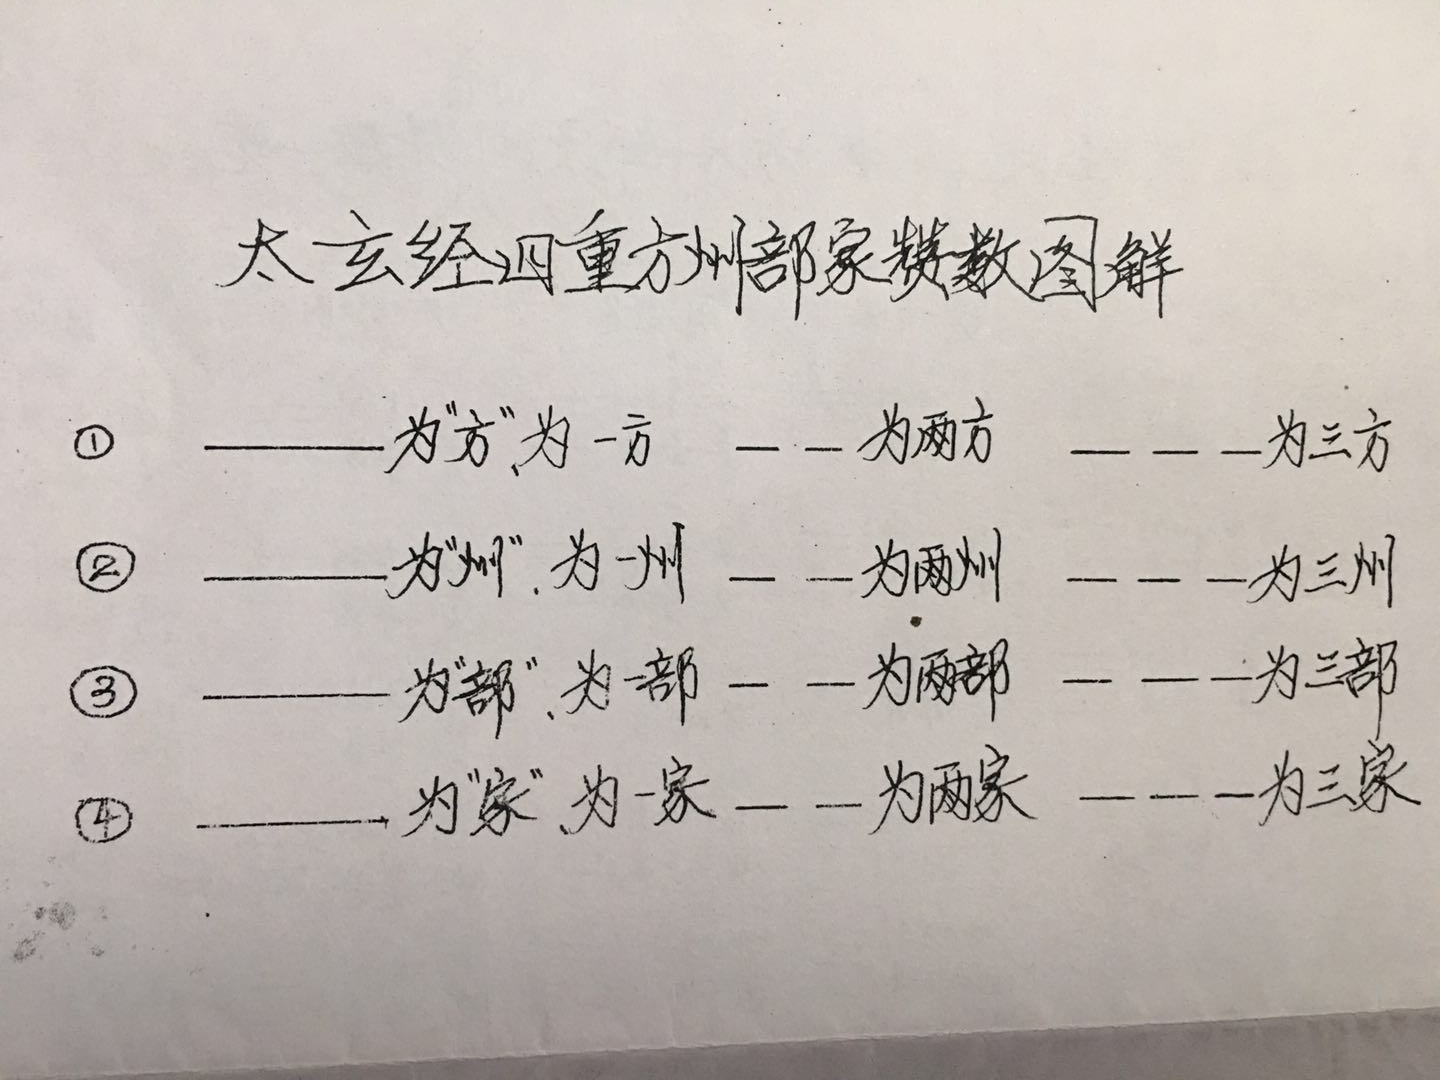 太玄经四重方州部家赞数图解
① —— 为"方"、为一方 — — 为两方 — — — 为三方
② —— 为"州"、为一州 — — 为两州 — — — 为三州
③ —— 为"部"、为一部 — — 为两部 — — — 为三部
④ —— 为"家"、为一家 — — 为两家 — — — 为三家